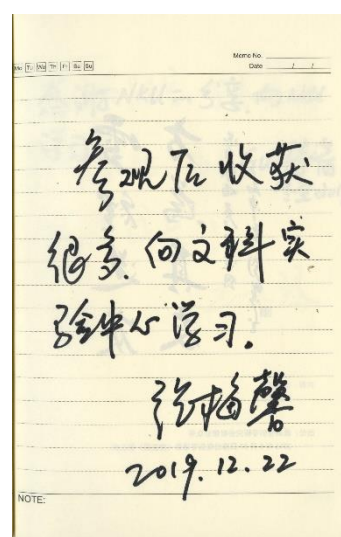 Memo No.
Mo Tu We Th Fr Sa Su
Date / /
参观后收获
很多,向文科实
验中心学习.
2019.12.22
NOTE: